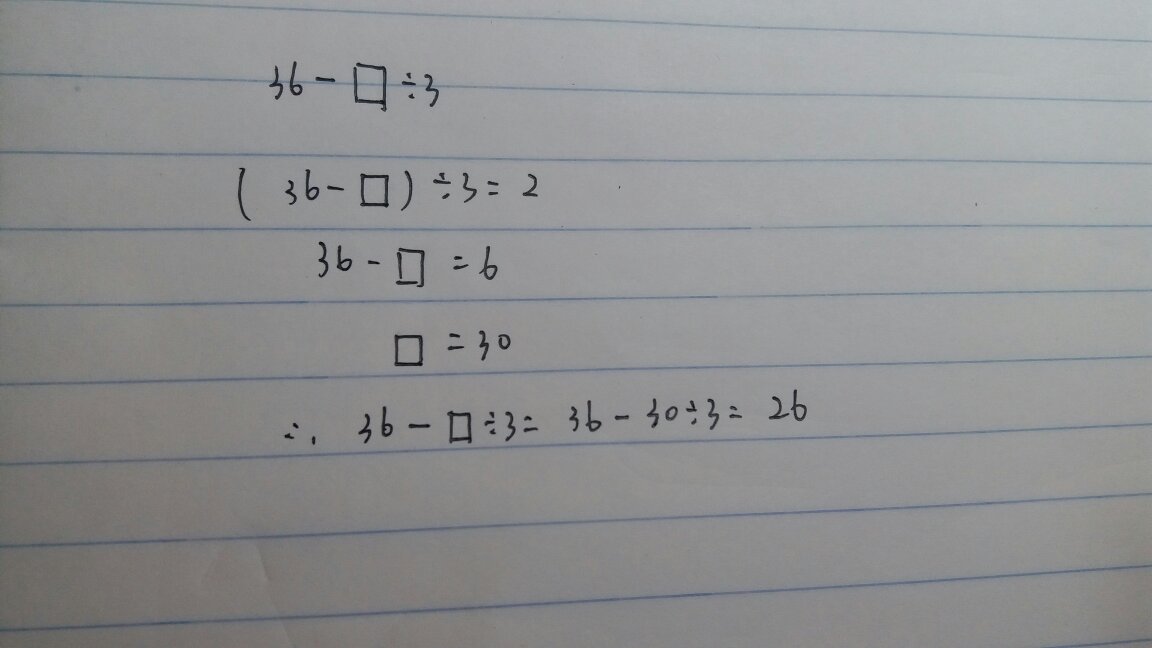 36 - □ ÷ 3
( 36 - □ ) ÷ 3 = 2
36 - □ = 6
□ = 30
∴ 36 - □ ÷ 3 = 36 - 30 ÷ 3 = 26